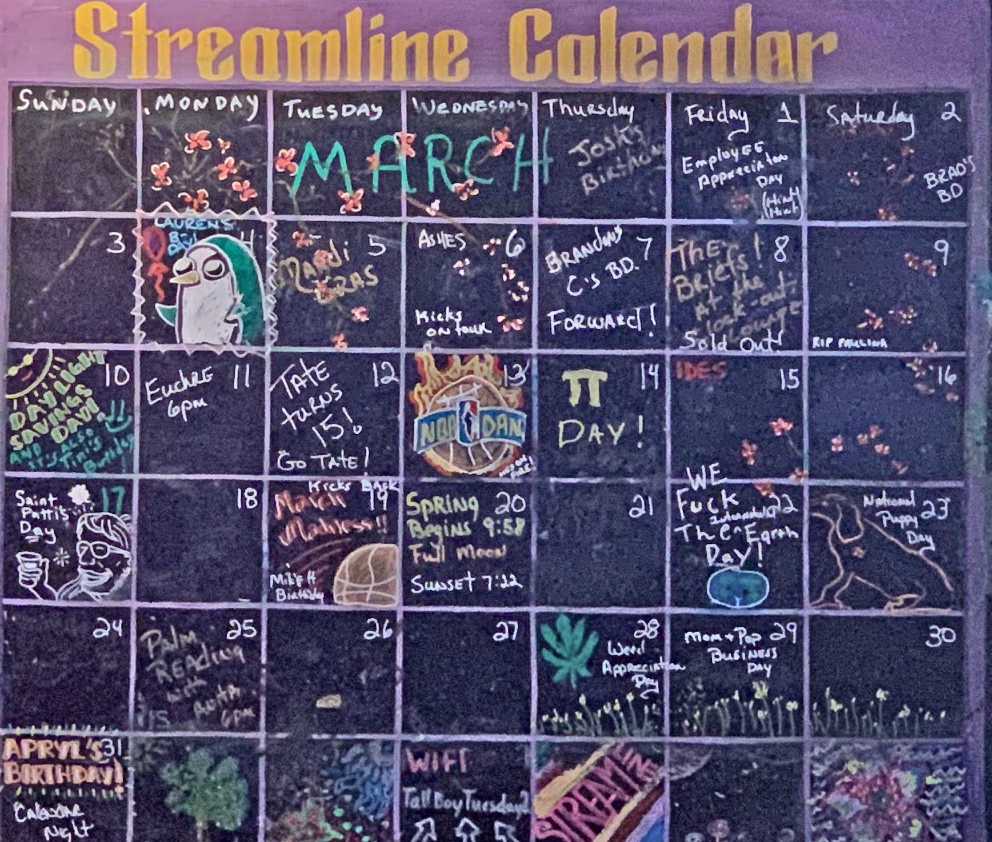 Streamline Calendar
SUNDAY
MONDAY
TUESDAY
WEDNESDAY
Thursday
Friday 1
Saturday 2
MARCH
Josh's
Birthday
Employee
Appreciation
Day
(Hint
Hint)
BRAD'S
BD
3
LAUREN'S
B-
DAY!
4
5
Mardi
GRAS
ASHES 6
Kicks
ON TOUR
BRANDON 7
C's BD.
FORWARD!!
The 8
Briefs!
At the
lock-out
Lounge
Sold Out!
9
RIP PAULINA
10
DAYLIGHT
SAVINGS
DAY!
AND
IT'S ALSO
Tini's
Birthday
Euchre 11
6pm
TATE 12
turns
15!
GO TATE!
13
NBA DAN
π 14
DAY!
IDES 15
16
Saint 17
Patti's
Day
18
Kicks BACK
March 19
Madness!!
Mike H
Birthday
SPRING 20
Begins 9:58
Full Moon
SUNSET 7:22
21
WE
Fuck 22
The Earth
Day!
National 23
Puppy
Day
24
Palm 25
READING
with
Ruth
6pm
26
27
28
Weed
Appreciation
Day
Mom + Pop 29
Business
Day
30
APRYL'S 31
BIRTHDAY!
Calendar
Night
WIFI
TallBoyTuesday2
STREAMLINE